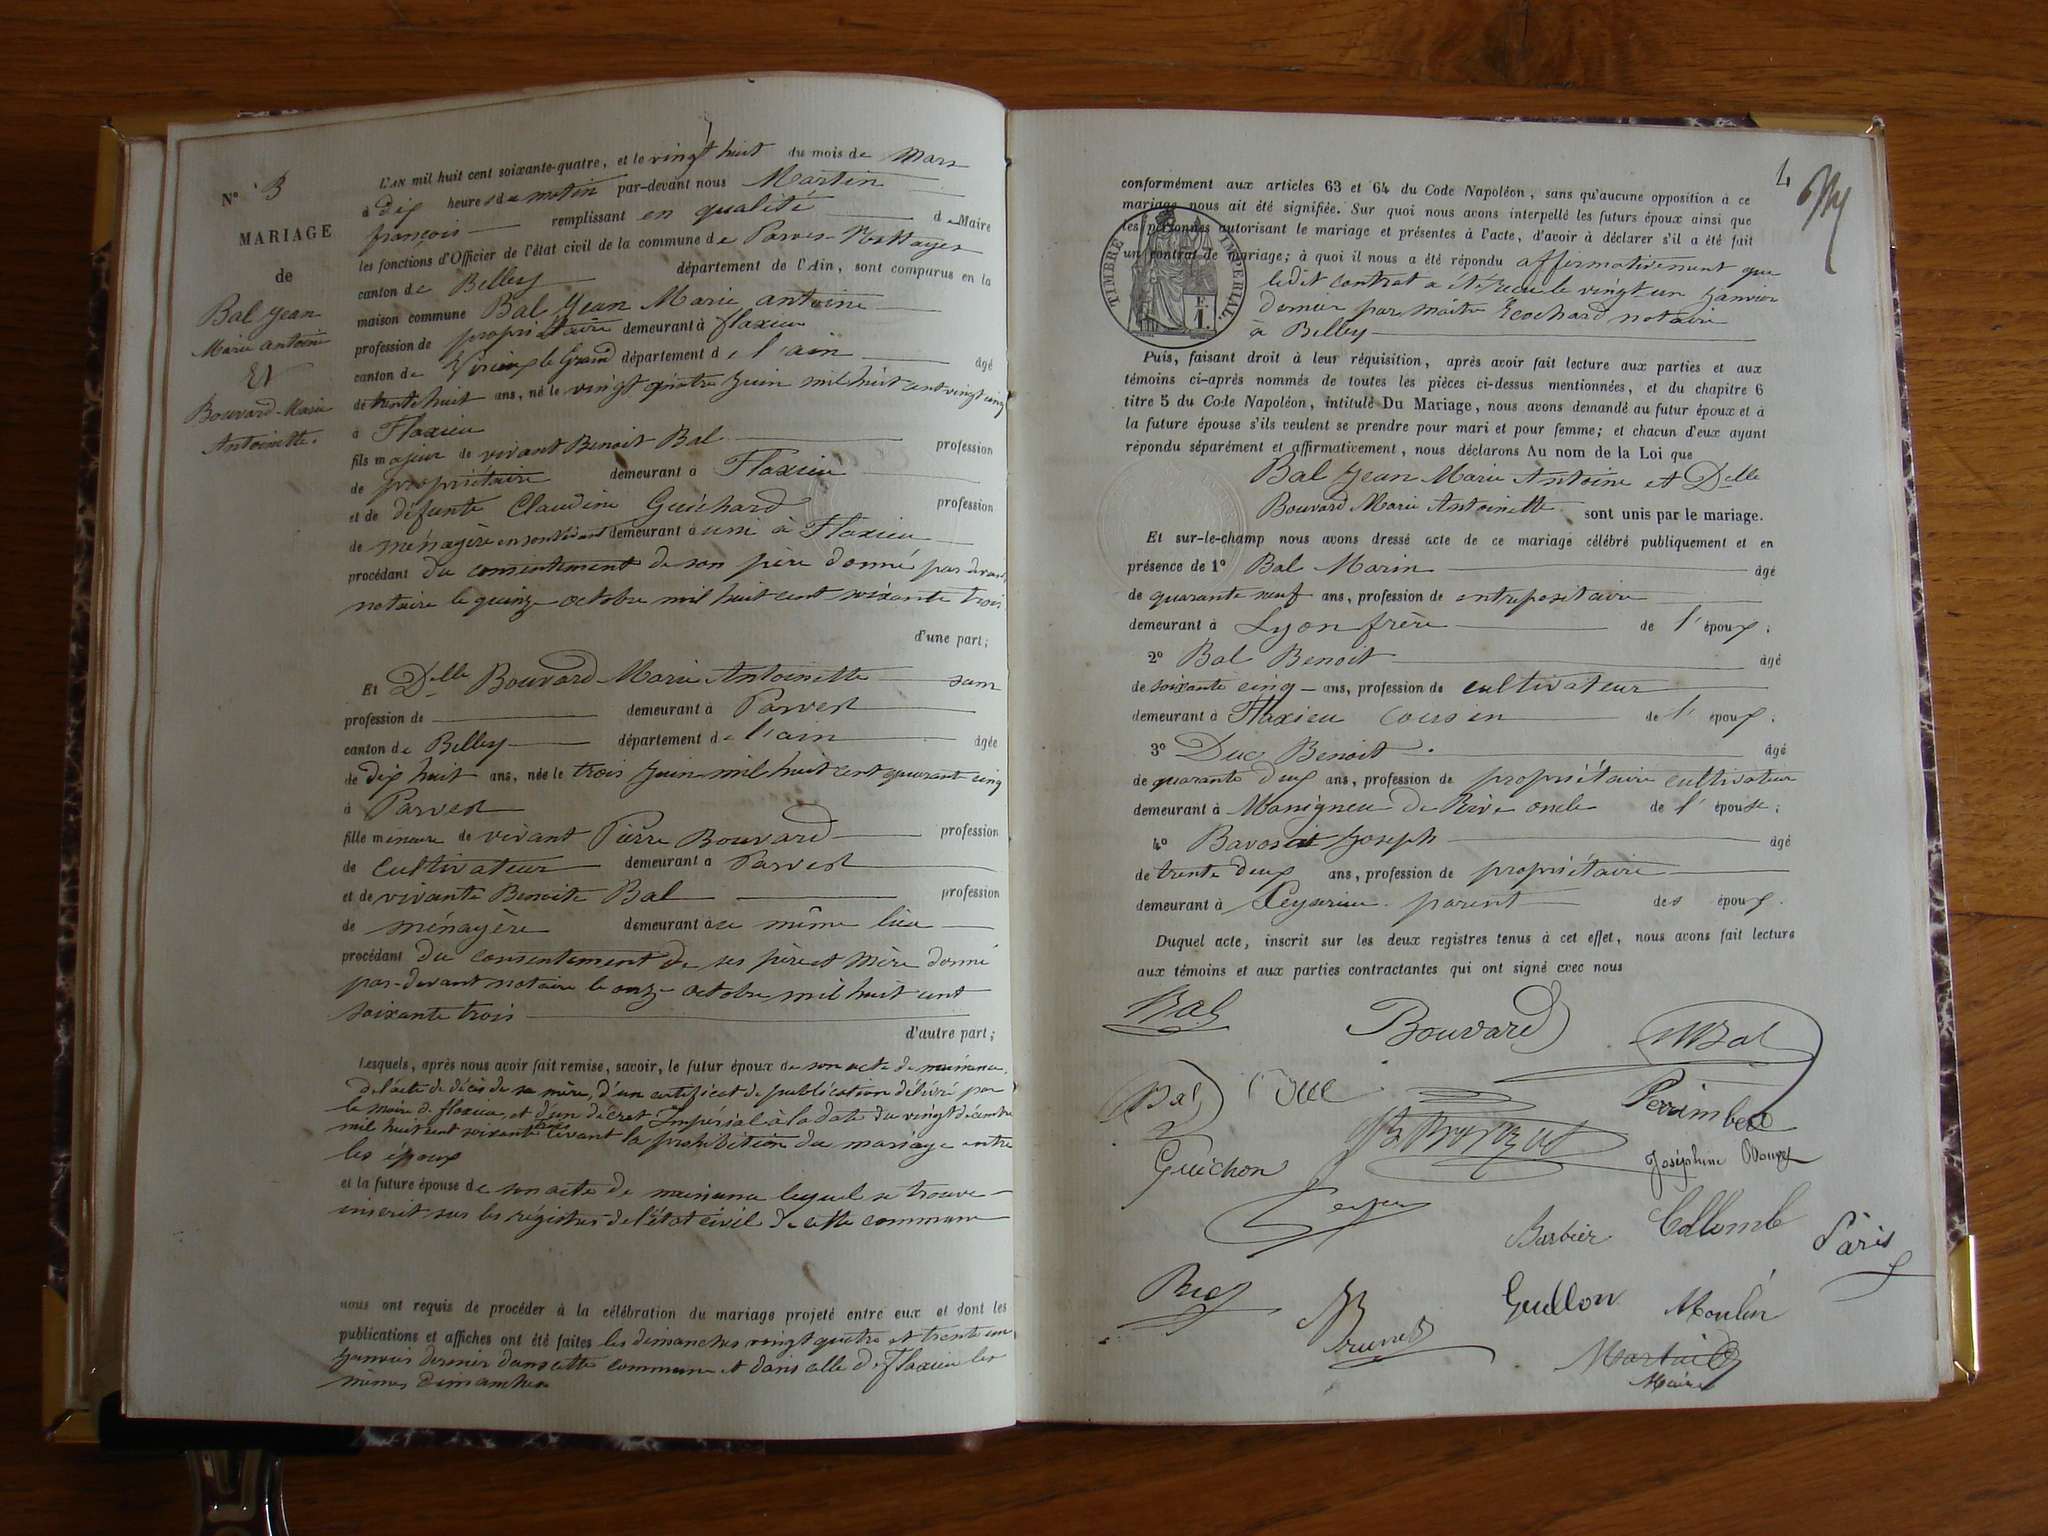 N° 3
MARIAGE
de
Bal Jean
Marie Antoine
Et
Bouvard Marie
Antoinette.
L'AN mil huit cent soixante-quatre, et le vingt huit du mois de Mars
à dix heures du matin par-devant nous Martin
françois remplissant en qualité de Maire
les fonctions d'Officier de l'état civil de la commune de Parves
canton de Belley département de l'Ain, sont comparus en la
maison commune Bal Jean Marie Antoine
profession de propriétaire demeurant à flaxieu
canton de Virieu le Grand département de l'ain âgé
de trente huit ans, né le vingt quatre Juin mil huit cent vingt cinq
à Flaxieu
fils majeur de vivant Benoit Bal profession
de propriétaire demeurant à Flaxieu
et de défunte Claudine Guichard profession
de ménagère en son vivant demeurant à uni à Flaxieu
procédant du consentement de son père donné par devant
notaire le quinze octobre mil huit cent soixante trois
d'une part;
Et Delle Bouvard Marie Antoinette sans
profession de demeurant à Parves
canton de Belley département de l'ain âgée
de dix huit ans, née le trois Juin mil huit cent quarante cinq
à Parves
fille mineure de vivant Pierre Bouvard profession
de cultivateur demeurant à Parves
et de vivante Benoite Bal profession
de ménagère demeurant à ce même lieu
procédant du consentement de ses père et mère donné
par-devant notaire le onze octobre mil huit cent
soixante trois
d'autre part;
Lesquels, après nous avoir fait remise, savoir, le futur époux de son acte de naissance,
de l'acte de décès de sa mère, d'un certificat de publication délivré par
le maire de flaxieu, et d'un décret Impérial à la date du vingt décembre
mil huit cent soixante trois levant la prohibition du mariage entre
les époux
et la future épouse de son acte de naissance lequel se trouve
inscrit sur les régistres de l'état civil de cette commune
nous ont requis de procéder à la célébration du mariage projeté entre eux et dont les
publications et affiches ont été faites les dimanches vingt quatre et trente un
Janvier dernier dans cette commune et dans celle de Flaxieu les
mêmes dimanches
4
conformément aux articles 63 et 64 du Code Napoléon, sans qu'aucune opposition à ce
mariage nous ait été signifiée. Sur quoi nous avons interpellé les futurs époux ainsi que
les personnes autorisant le mariage et présentes à l'acte, d'avoir à déclarer s'il a été fait
un contrat de mariage; à quoi il nous a été répondu affirmativement que
ledit contrat a été reçu le vingt un Janvier
dernier par maître Ecochard notaire
à Belley
TIMBRE IMPERIAL
Puis, faisant droit à leur réquisition, après avoir fait lecture aux parties et aux
témoins ci-après nommés de toutes les pièces ci-dessus mentionnées, et du chapitre 6
titre 5 du Code Napoléon, intitulé Du Mariage, nous avons demandé au futur époux et à
la future épouse s'ils veulent se prendre pour mari et pour femme; et chacun d'eux ayant
répondu séparément et affirmativement, nous déclarons Au nom de la Loi que
Bal Jean Marie Antoine et Delle
Bouvard Marie Antoinette sont unis par le mariage.
Et sur-le-champ nous avons dressé acte de ce mariage célébré publiquement et en
présence de 1° Bal Marin âgé
de quarante neuf ans, profession de entrepositaire
demeurant à Lyon frère de l'époux;
2° Bal Benoit âgé
de soixante cinq ans, profession de cultivateur
demeurant à Flaxieu cousin de l'époux;
3° Duc Benoit. âgé
de quarante deux ans, profession de propriétaire cultivateur
demeurant à Massigneu de Rive oncle de l'épouse;
4° Bavoset Joseph âgé
de trente deux ans, profession de propriétaire
demeurant à Peyzieu parent des époux.
Duquel acte, inscrit sur les deux registres tenus à cet effet, nous avons fait lecture
aux témoins et aux parties contractantes qui ont signé avec nous
Bal Bouvard MBal
Bal Duc
Perrimbert
Guichon
Joséphine
Barbier Collomb Pâris
Guillon Moulin
Brunet
Martin
Maire